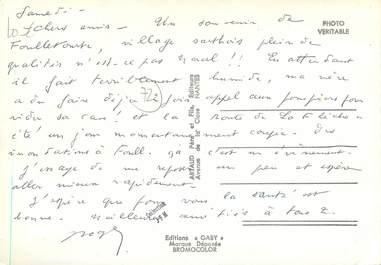 Samedi -
Chers amis - Un souvenir de
Foulletourte, village sarthois plein de
qualités n'est-ce pas !!! En attendant
il fait terriblement humide, ma mère
a du faire déjà fois appel aux pompiers pour
vider sa cave ! et la Route de La Flèche
été un jour momentanément coupée. Des
inondations à Foull. ça c'est un événement.
J'essaye de me reposer un peu et espère
aller mieux rapidement.
J'espère que pour vous la santé est
bonne. Meilleures amitiés à tous 2.
PHOTO
VERITABLE
ARTAUD Père et Fils, Éditeurs
Avenue de la Close NANTES
72
Editions « GABY »
Marque Déposée
BROMOCOLOR